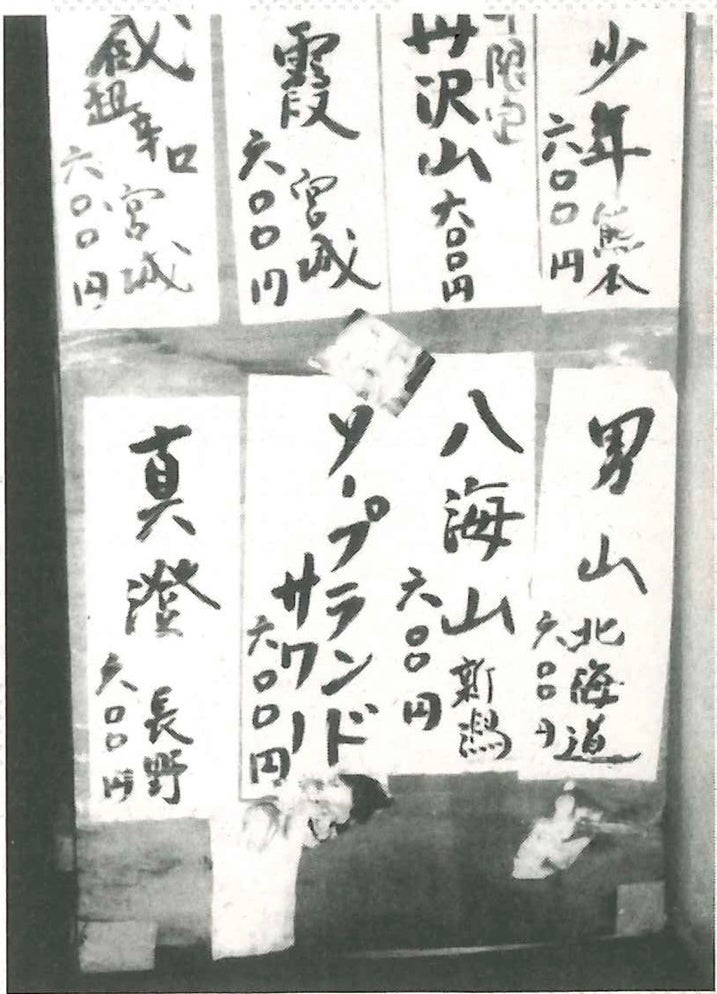 少年
熊本
六〇〇円
限定
丹沢山
六〇〇円
霞
宮城
六〇〇円
蔵
超辛口
宮城
六〇〇円
男山
北海道
六〇〇円
八海山
新潟
六〇〇円
ソープランド
サワー
六〇〇円
真澄
長野
六〇〇円